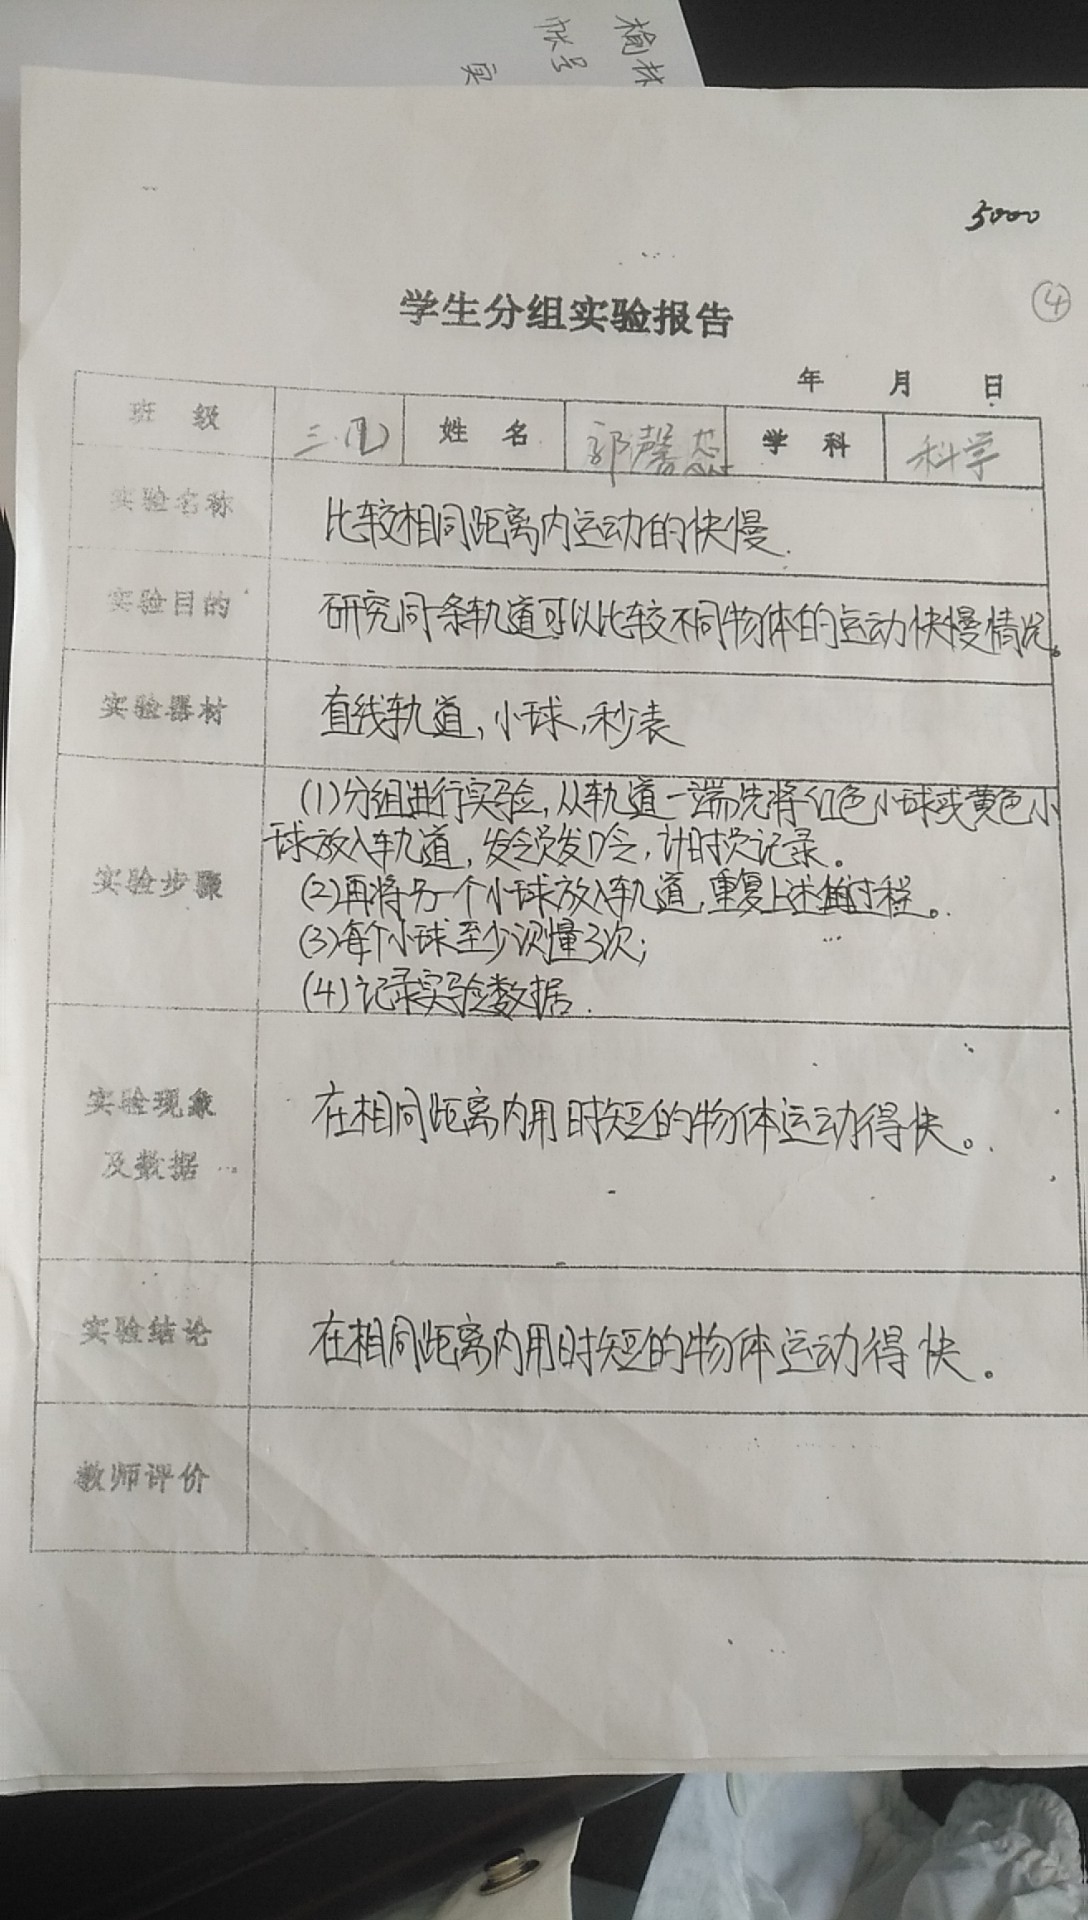 榆林
帐号
5000
④
学生分组实验报告
年 月 日
班 级 三.(2) 姓 名 郭馨蕊 学 科 科学
实验名称 比较相同距离内运动的快慢.
实验目的 研究同一条轨道可以比较不同物体的运动快慢情况。
实验器材 直线轨道,小球,秒表
实验步骤
(1)分组进行实验,从轨道一端先将红色小球或黄色小
球放入轨道,发令员发口令,计时员记录。
(2)再将另一个小球放入轨道,重复上述过程。
(3)每个小球至少测量3次;
(4)记录实验数据.
实验现象
及数据
在相同距离内用时短的物体运动得快。
实验结论 在相同距离内用时短的物体运动得快。
教师评价